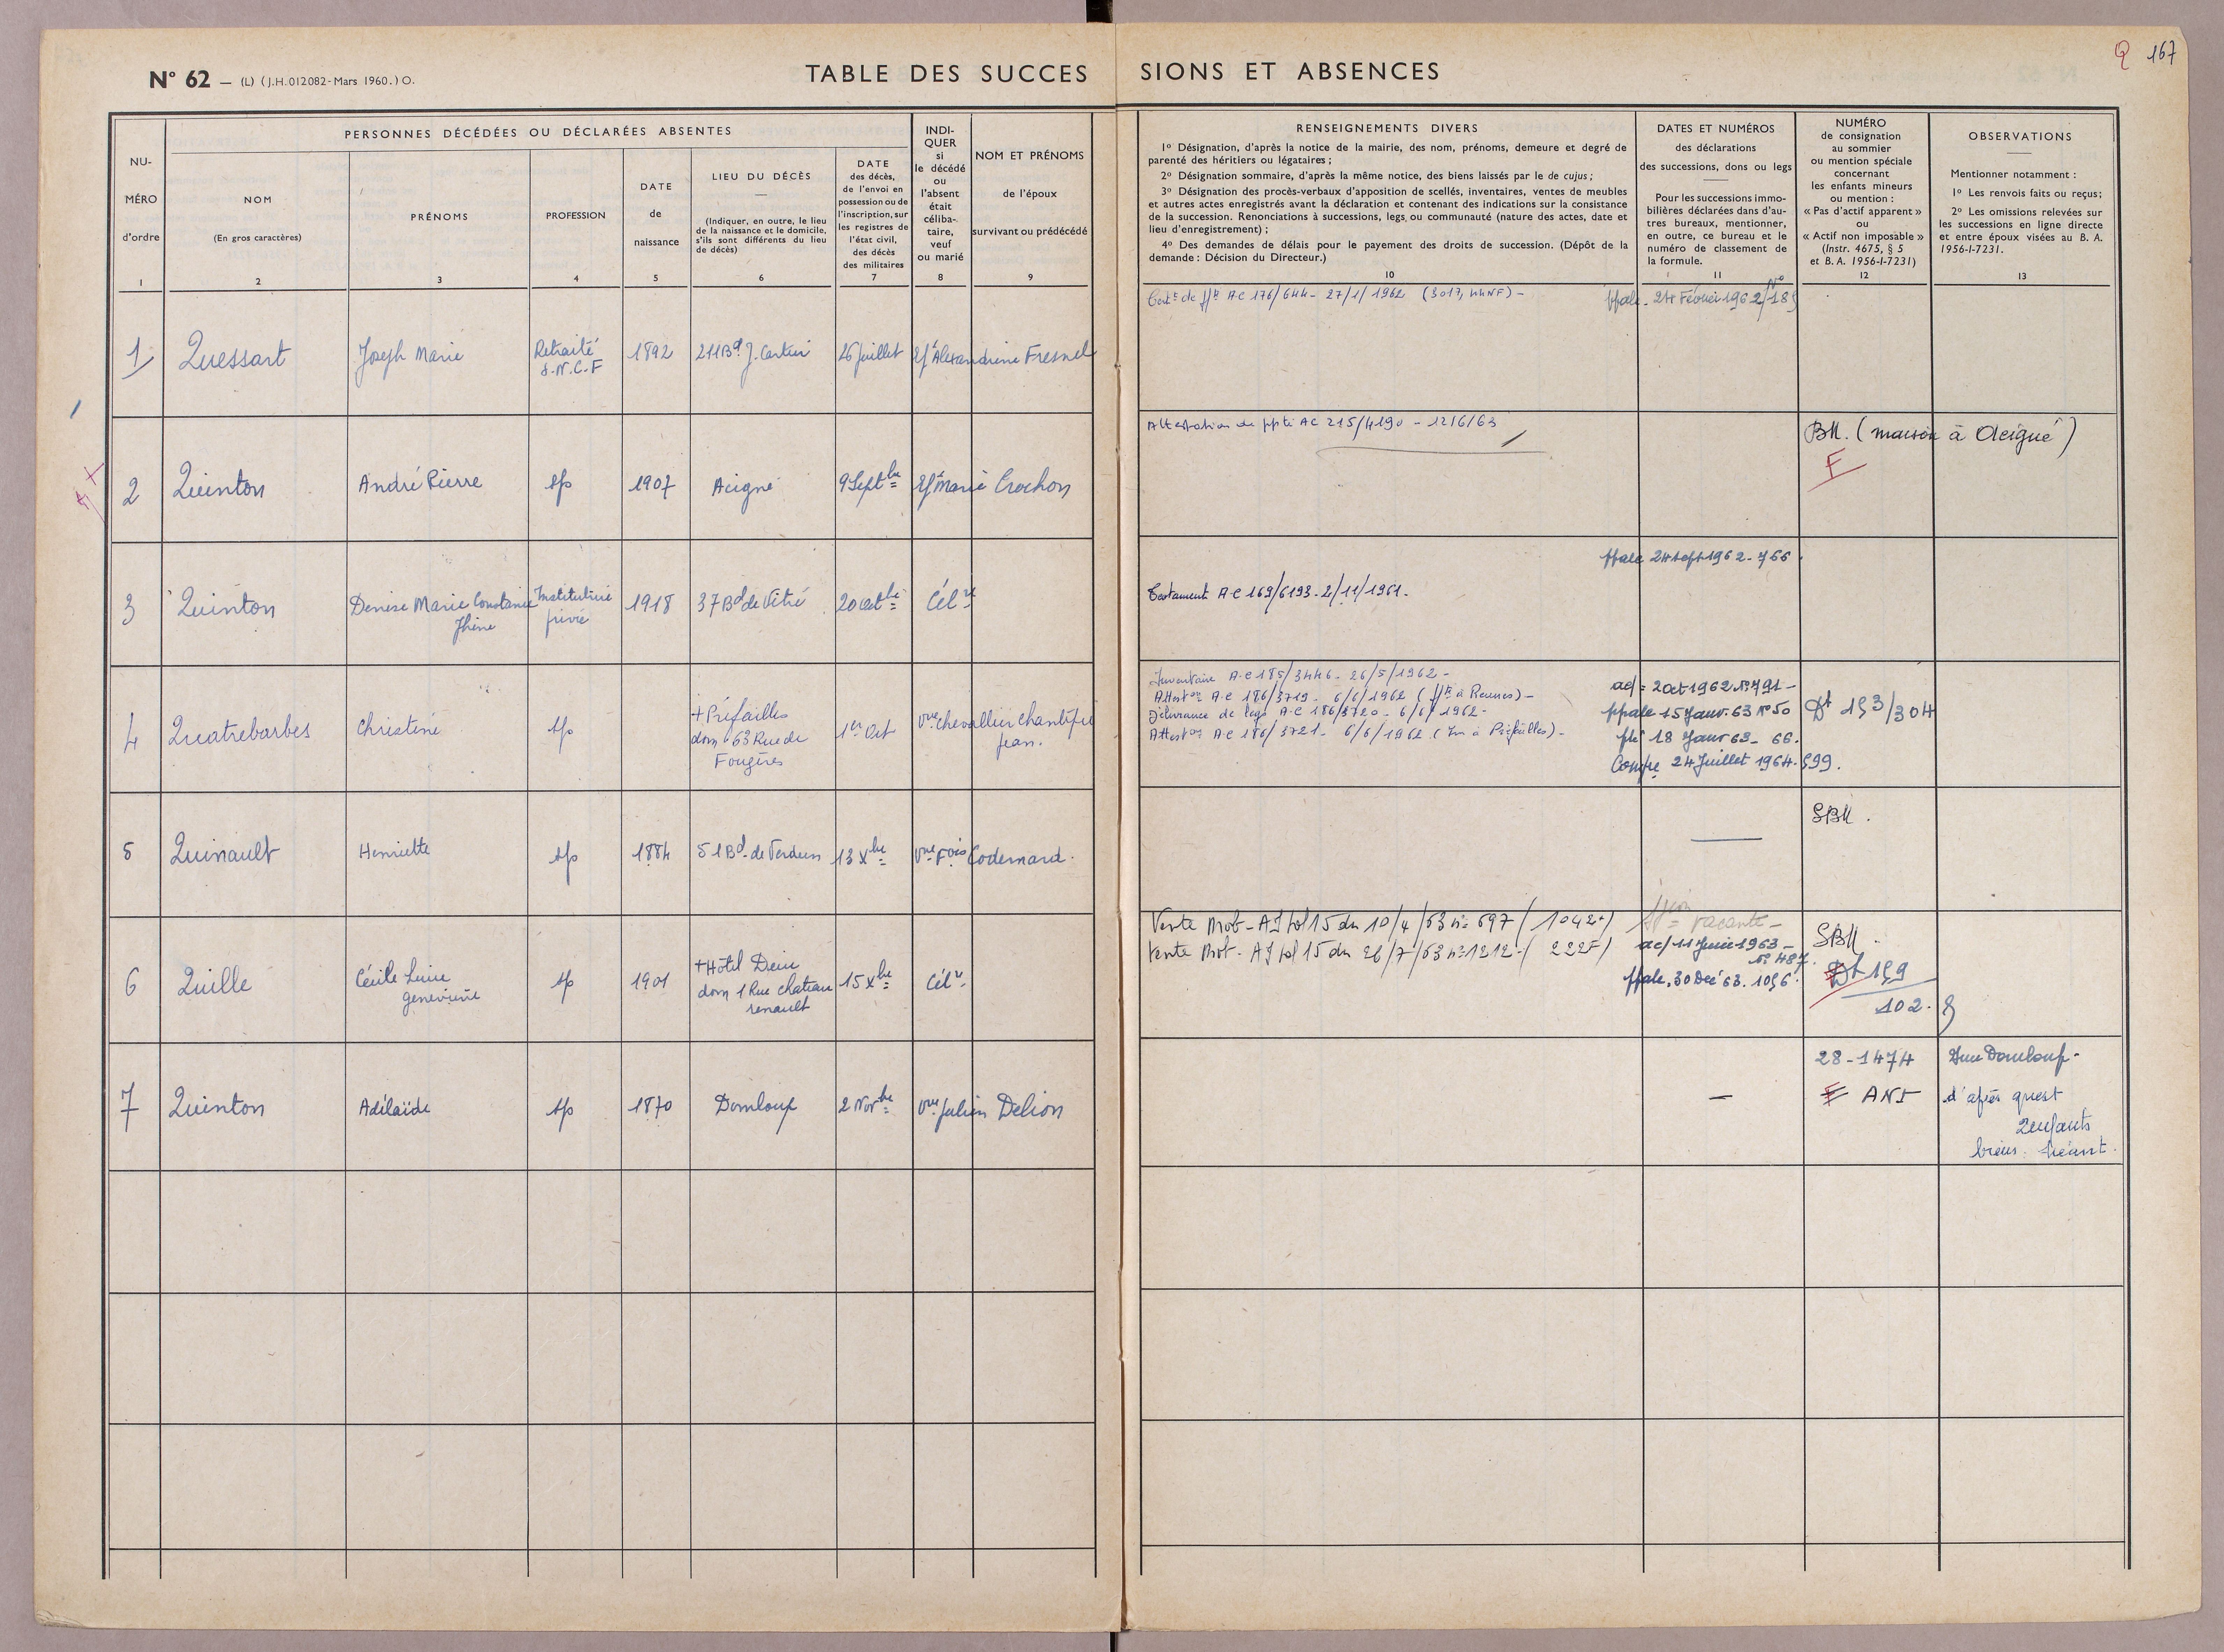 Q 167
N° 62 — (L) (J.H. 012082 - Mars 1960.) O.
TABLE DES SUCCES SIONS ET ABSENCES
NU-
MÉRO
d'ordre
1
PERSONNES DÉCÉDÉES OU DÉCLARÉES ABSENTES
NOM
(En gros caractères)
2
PRÉNOMS
3
PROFESSION
4
DATE
de
naissance
5
LIEU DU DÉCÈS
(Indiquer, en outre, le lieu
de la naissance et le domicile,
s'ils sont différents du lieu
de décès)
6
DATE
des décès,
de l'envoi en
possession ou de
l'inscription, sur
les registres de
l'état civil,
des décès
des militaires
7
INDI-
QUER
si
le décédé
ou
l'absent
était
céliba-
taire,
veuf
ou marié
8
NOM ET PRÉNOMS
de l'époux
survivant ou prédécédé
9
RENSEIGNEMENTS DIVERS
1° Désignation, d'après la notice de la mairie, des nom, prénoms, demeure et degré de
parenté des héritiers ou légataires ;
2° Désignation sommaire, d'après la même notice, des biens laissés par le de cujus ;
3° Désignation des procès-verbaux d'apposition de scellés, inventaires, ventes de meubles
et autres actes enregistrés avant la déclaration et contenant des indications sur la consistance
de la succession. Renonciations à successions, legs ou communauté (nature des actes, date et
lieu d'enregistrement) ;
4° Des demandes de délais pour le payement des droits de succession. (Dépôt de la
demande : Décision du Directeur.)
10
DATES ET NUMÉROS
des déclarations
des successions, dons ou legs
Pour les successions immo-
bilières déclarées dans d'au-
tres bureaux, mentionner,
en outre, ce bureau et le
numéro de classement de
la formule.
11
NUMÉRO
de consignation
au sommier
ou mention spéciale
concernant
les enfants mineurs
ou mention :
« Pas d'actif apparent »
ou
« Actif non imposable »
(Instr. 4675, § 5
et B. A. 1956-I-7231)
12
OBSERVATIONS
Mentionner notamment :
1° Les renvois faits ou reçus;
2° Les omissions relevées sur
les successions en ligne directe
et entre époux visées au B. A.
1956-I-7231.
13
1 Quessart Joseph Marie Retraité S.N.C.F 1892 211 Bd J. Cartier 26 Juillet Alexandrine Fresnel
AC 176/644 - 27/1/1962 (3017, 44NF) -
ppale - 24 Février 1962
2 Quinton André Pierre sp 1907 Acigné 9 Septbre Marie Crochon
Attestation de ppté AC 215/4190 - 12/6/63
BM. (maison à Acigné)
F
3 Quinton Denise Marie Constance Institutrice privée 1918 37 Bd de Vitré 20 octbre Célre
Testament AC 169/6193 - 2/11/1961.
ppale 24 sept 1962 - 766
4 Quatrebarbes Christine sp + Préfailles
dom 63 Rue de
Fougères
1er Oct vve Chevallier Chantepie
Jean.
Inventaire AC 185/3446 - 26/5/1962 -
Atteston AC 186/3719 - 6/6/1962 ( à Rennes) -
Délivrance de legs AC 186/3720 - 6/6/1962 -
Atteston AC 186/3721 - 6/6/1962 (Im à Préfailles) -
2 oct 1962 N° 791 -
ppale 15 Janv. 63 N° 50
18 Janv 63 - 66.
Compre 24 Juillet 1964. 599.
Dt 153/304
5 Quinault Henriette sp 1884 51 Bd de Verdun 13 Xbre vve Fois Codernard.
SBM.
6 Quillé Cécile Luise
genevieve
sp 1901 + Hôtel Dieu
dom 1 Rue Chateau
renault
15 Xbre Célre
Vente Mob - AJ fol 15 du 10/4/63 n° 697 (1042F)
Vente Mob - AJ fol 15 du 26/7/63 n° 1212 - (222F)
vacante -
11 Juin 1963 -
N° 487.
ppale, 30 Déc 63. 1056.
SBM.
Dt 159
102.
7 Quinton Adélaïde sp 1870 Domloup 2 Novbre vve Julien Delion
—
28 - 1474
ANI
Domloup -
d'après quest
2 enfants
biens. néant.